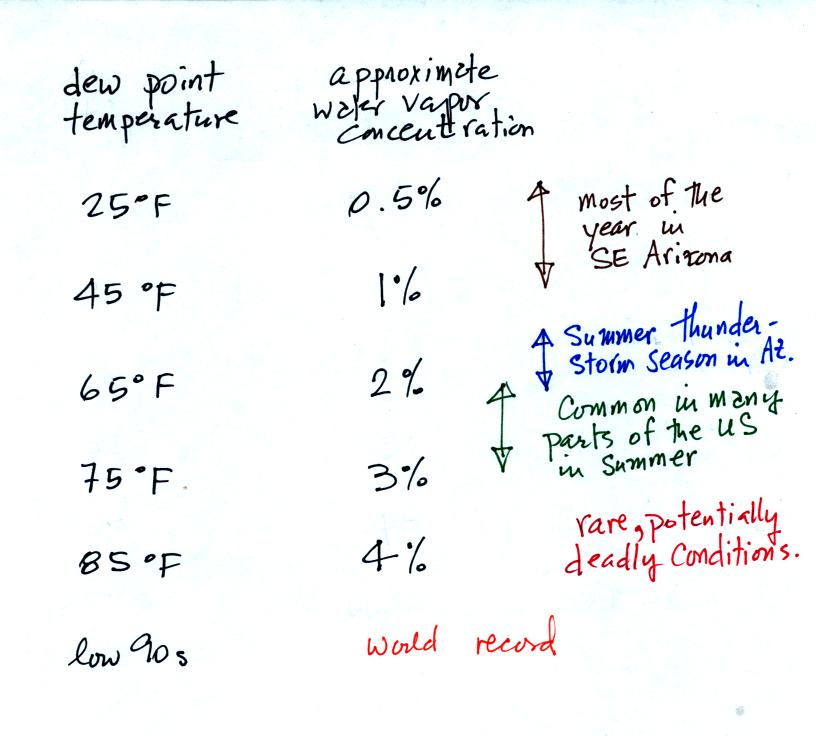 dew point
temperature
approximate
water vapor
concentration
25°F
0.5%
most of the
year in
SE Arizona
45 °F
1%
Summer thunder-
storm season in Az.
65°F
2%
Common in many
parts of the US
in Summer
75°F.
3%
rare, potentially
deadly Conditions.
85 °F
4%
low 90s
world record